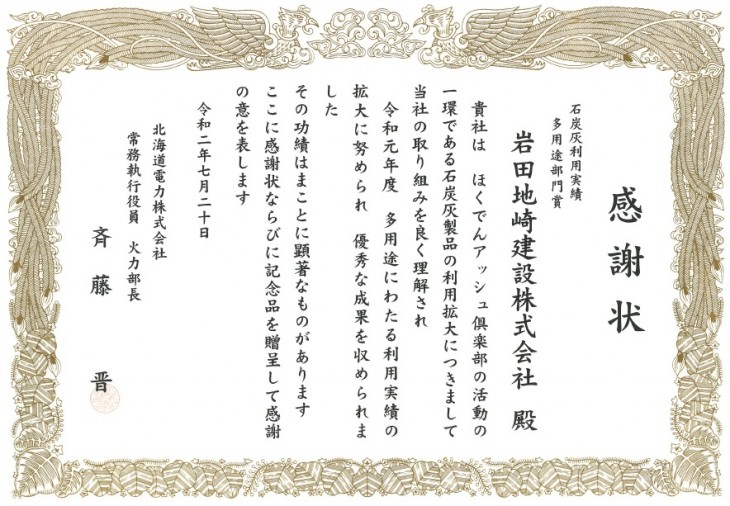 感謝状
石炭灰利用実績
多用途部門賞
岩田地崎建設株式会社 殿
貴社は ほくでんアッシュ倶楽部の活動の
一環である石炭灰製品の利用拡大につきまして
当社の取り組みを良く理解され
令和元年度 多用途にわたる利用実績の
拡大に努められ 優秀な成果を収められま
した
その功績はまことに顕著なものがあります
ここに感謝状ならびに記念品を贈呈して感謝
の意を表します
令和二年七月二十日
北海道電力株式会社
常務執行役員 火力部長
斉藤 晋